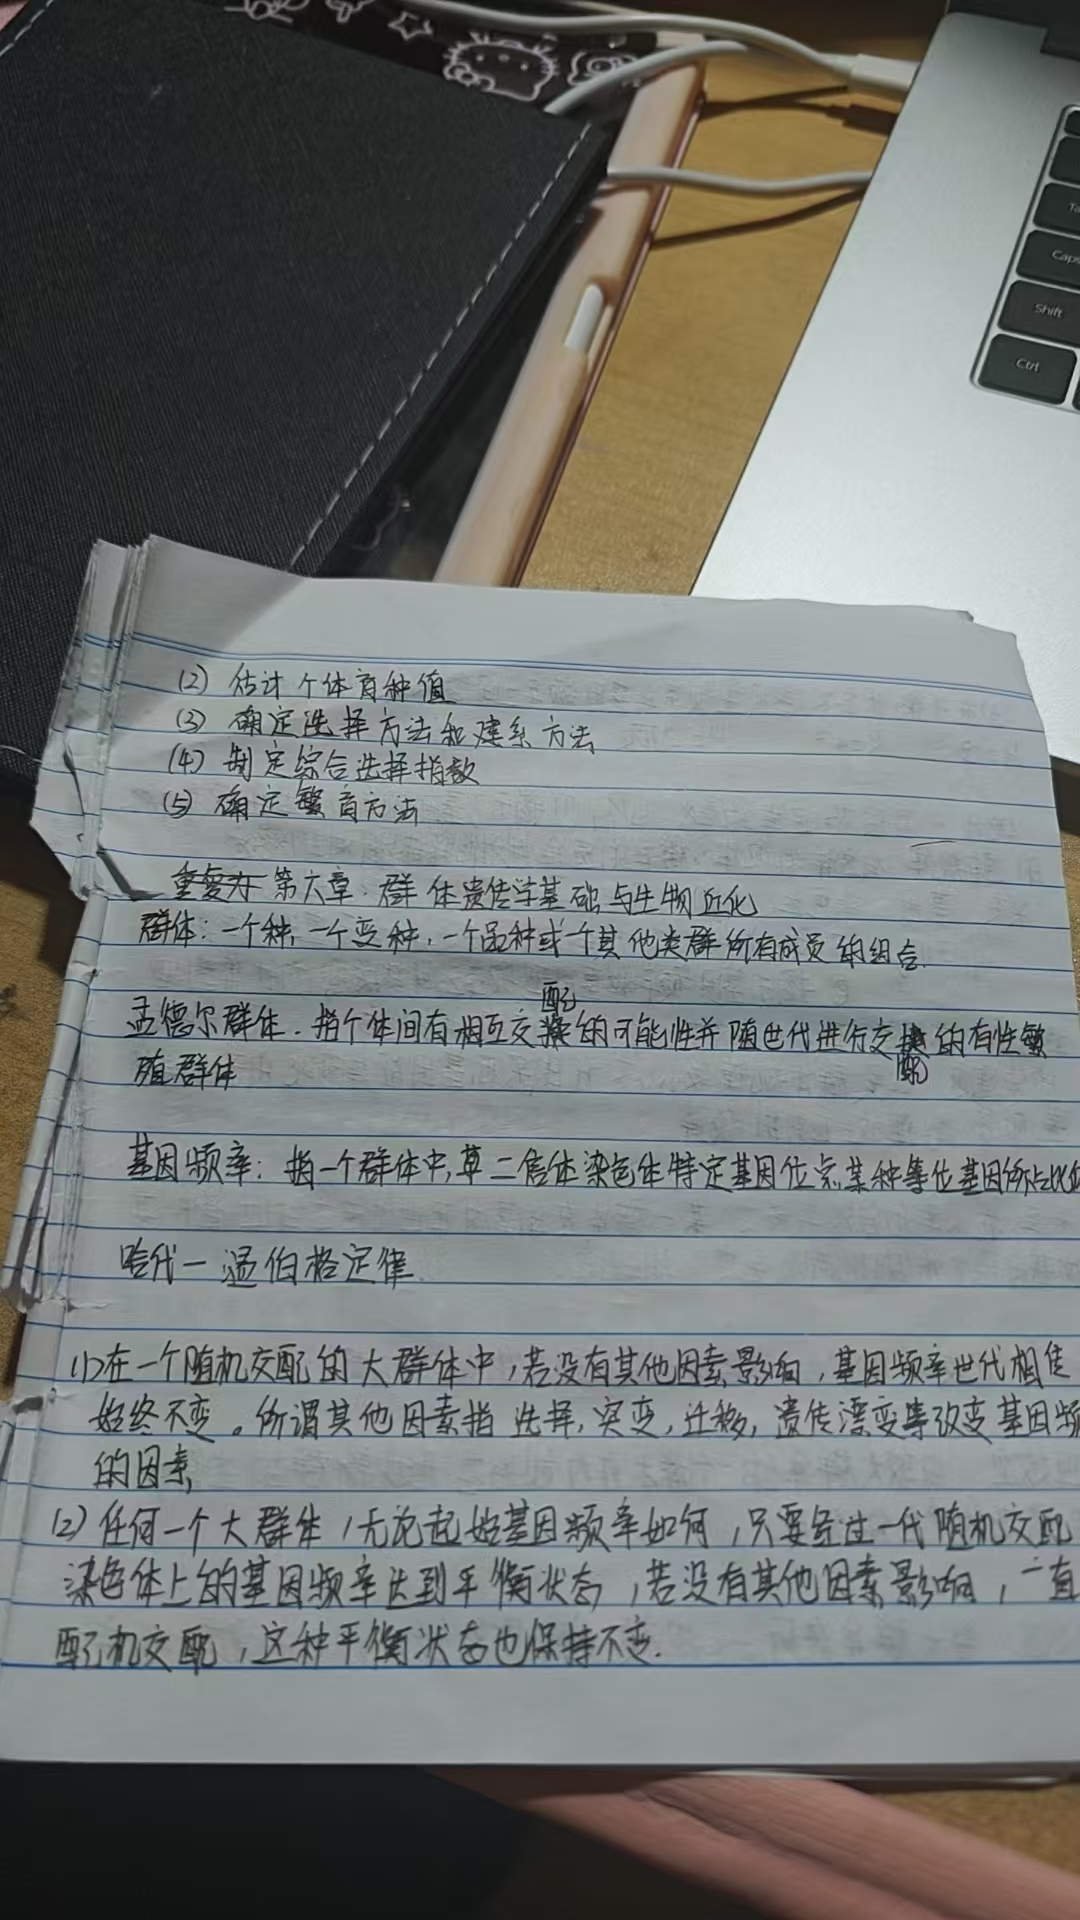 Ta
Caps
Shift
Ctrl
(2) 估计个体育种值
(3) 确定选择方法和建系方法
(4) 制定综合选择指数
(5) 确定繁育方法
重复力 第六章：群体遗传学基础与生物近化
群体：一个种，一个变种，一个品种或一个其他类群所有成员的组合.
孟德尔群体．指个体间有相互交配的可能性并随世代进行交配的有性繁
殖群体
基因频率：指一个群体中，某二倍体染色体特定基因位点某种等位基因所占比
哈代一温伯格定律
(1)在一个随机交配的大群体中，若没有其他因素影响，基因频率世代相传
始终不变。所谓其他因素指 选择，突变，迁移，遗传漂变等改变基因频
的因素
(2)任何一个大群体，无论起始基因频率如何，只要经过一代随机交配
染色体上的基因频率达到平衡状态，若没有其他因素影响，一直
配机交配，这种平衡状态也保持不变.